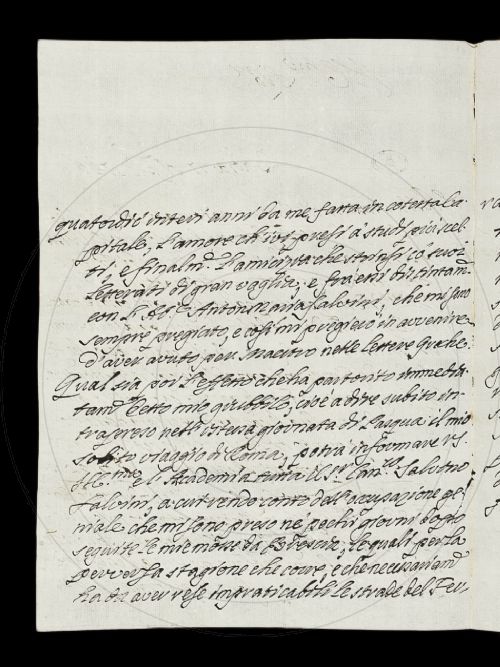 quatordici interi anni da me fatta in cotesta Ca-
pitale, l'amore ch'ivi presi a studi più scel-
ti, e finalm.e l'amicizia che strinsi cõ suoi
Letterati di gran vaglia, e fra essi distintam.
con l' Anton Maria Salvini, che mi sono
sempre pregiato, e così mi pregierò in avvenire
d'aver avuto per Maestro nelle Lettere Greche.
Qual sia poi l'effetto che ha partorito immedia-
tam.e detto mio giubbilo, cioè a dire subito in-
trapreso nell'istessa giornata di Pasqua il mio
solito viaggio di Roma, potrà informare VS
Ill.ma e l'Accademia tutta il S.r Can.co Salvino
Salvini, a cui rendo conto dell'occupazione ge-
niale che mi sono preso ne pochi giorni dopo
seguite le mie mosse da Brescia, le quali per la
perversa stagione che corre, e che necessariam.
ha da aver rese impraticabili le strade del Fer-